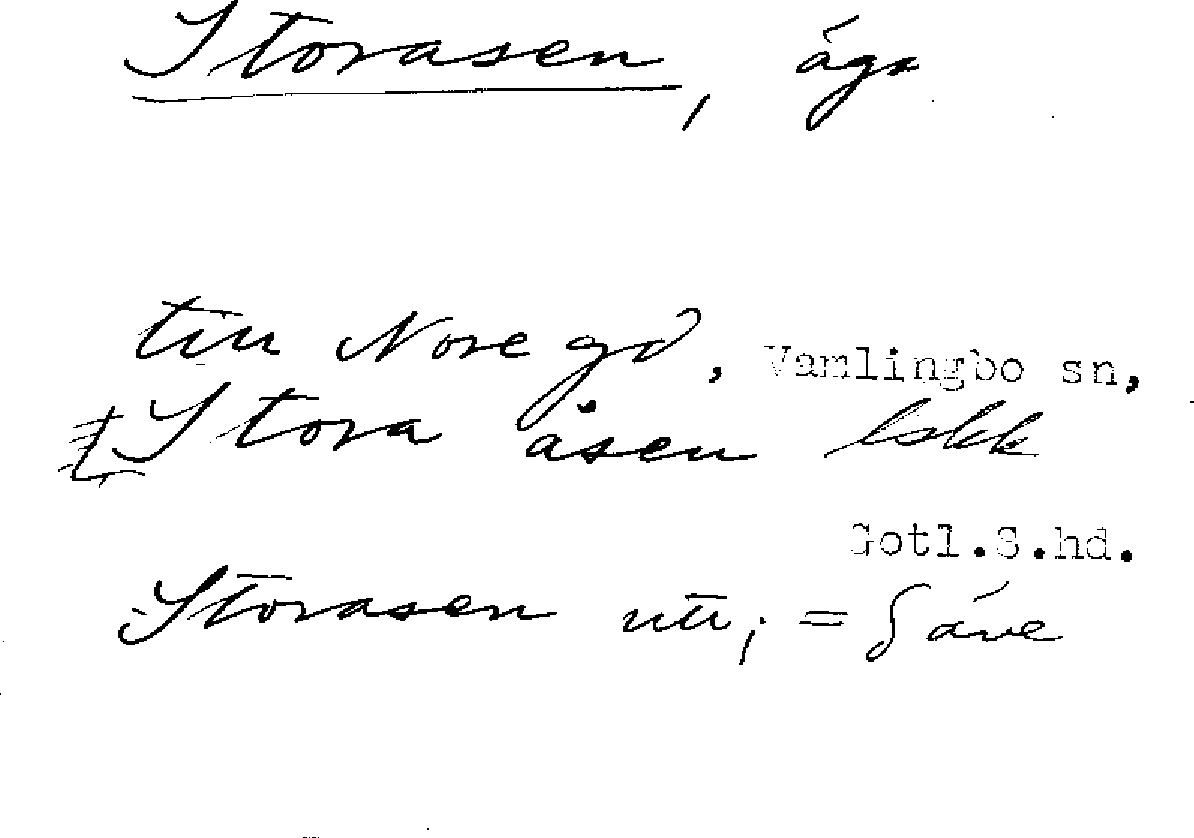 Storasen, äga
till Nore gd, Vamlingbo sn,
Stora åsen lskk
Gotl.S.hd.
Storasen utt; = Säve